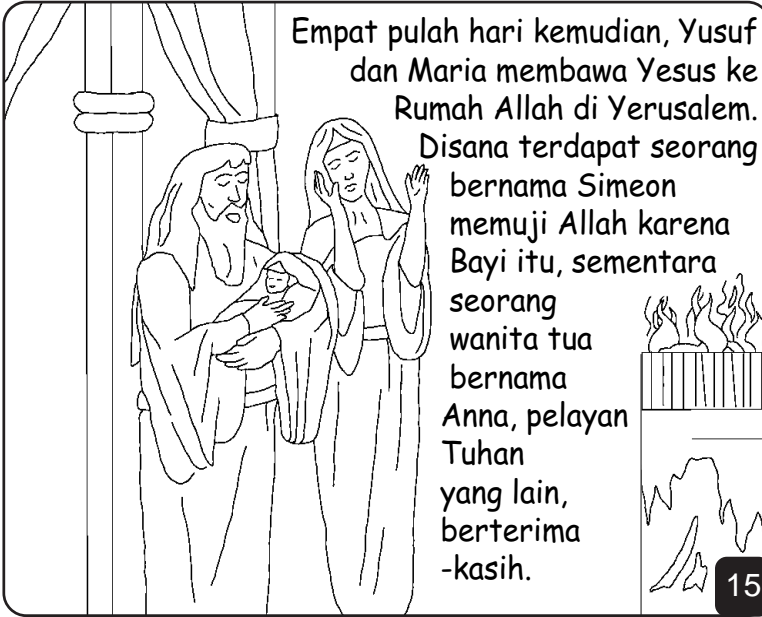 Empat pulah hari kemudian, Yusuf
dan Maria membawa Yesus ke
Rumah Allah di Yerusalem.
Disana terdapat seorang
bernama Simeon
memuji Allah karena
Bayi itu, sementara
seorang
wanita tua
bernama
Anna, pelayan
Tuhan
yang lain,
berterima
-kasih.
15